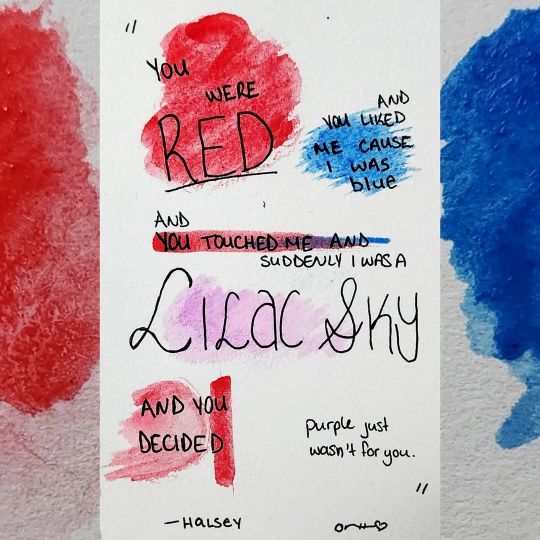 "
YOU
WERE
RED
AND
YOU LIKED
ME CAUSE
I WAS
blue
AND
YOU TOUCHED ME AND
SUDDENLY I WAS A
LiLac Sky
AND YOU
DECIDED
purple just
wasn't for you.
"
—HALSEY